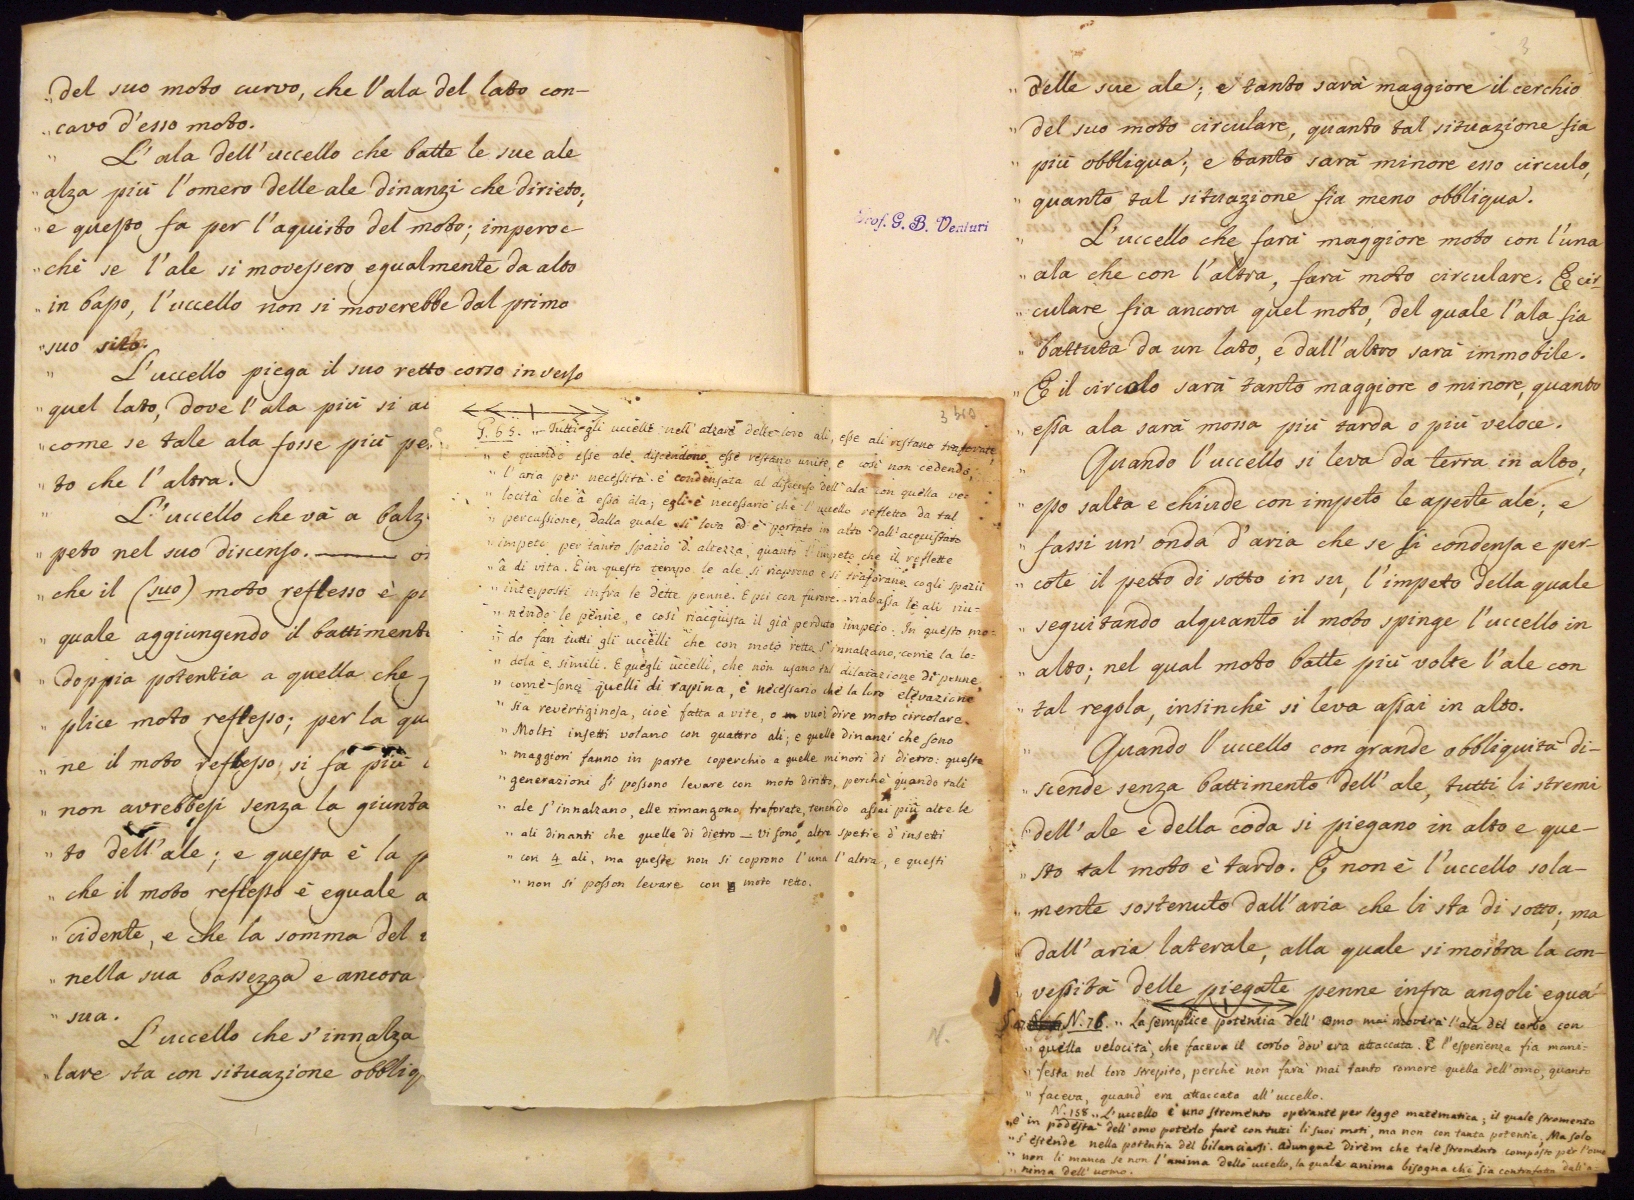 „ del suo moto curvo, che l'ala del lato con-
„ cavo d'esso moto.
„ L'ala dell'uccello che batte le sue ale
„ alza più l'omero delle ale dinanzi che dirieto;
„ e questo fa per l'aquisto del moto; imperoc-
„ chè se l'ale si movessero egualmente da alto
„ in basso, l'uccello non si moverebbe dal primo
„ suo sito.
„ L'uccello piega il suo retto corso in verso
„ quel lato, dove l'ala più si
„ come se tale ala fosse più
„ to che l'altra.
„ L'uccello che và a
„ peto nel suo discenso.
„ che il (suo) moto reflesso è
„ quale aggiungendo il
„ doppia potentia a quella che
„ plice moto reflesso; per la
„ ne il moto reflesso, si fa più
„ non avrebbesi senza la giunta
„ to dell'ale; e questa è la
„ che il moto reflesso è eguale
„ cidente, e che la somma del
„ nella sua bassezza e ancora
„ sua.
L'uccello che s'innalza
„ lare sta con situazione
3 bis
G. 65. „ Tutti gli uccelli nell'alzare delle loro ali, esse ali restano traforate,
„ e quando esse ale discendono, esse restano unite, e così non cedendo,
„ l'aria per necessità è condensata al discenso dell'ala con quella ve-
„ locità che à essa ala; egli è necessario che l'uccello refletta da tal
„ percussione, dalla quale si leva ed è portato in alto dall'acquistato
„ impeto per tanto spazio d'altezza, quanto l'impeto che il reflette
„ à di vita. E in questo tempo le ale si riaprono e si traforano cogli spazii
„ interposti infra le dette penne. E poi con furore riabassa le ali riu-
„ nendo le penne, e così riacquista il già perduto impeto. In questo mo-
„ do fan tutti gli uccelli che con moto retto s'innalzano, come la lo-
„ dola e simili. E quegli uccelli, che non usano tal dilatazione di penne,
„ come sono quelli di rapina, è necessario che la loro elevazione
„ sia revertiginosa, cioè fatta a vite, o vuoi dire moto circolare.
„ Molti insetti volano con quattro ali; e quelle dinanzi che sono
„ maggiori fanno in parte coperchio a quelle minori di dietro: queste
„ generazioni si possono levare con moto diritto, perchè quando tali
„ ale s'innalzano, elle rimangono traforate, tenendo assai più alte le
„ ali dinanti che quelle di dietro – vi sono altra spetie d'insetti
„ con 4 ali, ma queste non si coprono l'una l'altra, e questi
„ non si posson levare con moto retto.
N.
Prof. G. B. Venturi
3
„ delle sue ale; e tanto sarà maggiore il cerchio
„ del suo moto circulare, quanto tal situazione fia
„ più obbliqua; e tanto sarà minore esso circulo,
„ quanto tal situazione fia meno obbliqua.
„ L'uccello che farà maggiore moto con l'una
„ ala che con l'altra, farà moto circulare. E cir-
„ culare fia ancora quel moto, del quale l'ala fia
„ battuta da un lato, e dall'altro sarà immobile.
„ E il circulo sarà tanto maggiore o minore, quanto
„ essa ala sarà mossa più tarda o più veloce.
„ Quando l'uccello si leva da terra in alto,
„ esso salta e chiude con impeto le aperte ale; e
„ fassi un'onda d'aria che se si condensa e per-
„ cote il petto di sotto in su, l'impeto della quale
„ seguitando alquanto il moto spinge l'uccello in
„ alto; nel qual moto batte più volte l'ale con
„ tal regola, insinchè si leva assai in alto.
„ Quando l'uccello con grande obbliquità di-
„ scende senza battimento dell'ale, tutti li stremi
„ dell'ale e della coda si piegano in alto e que-
„ sto tal moto è tardo. E non è l'uccello sola-
„ mente sostenuto dall'aria che li sta di sotto; ma
„ dall'aria laterale, alla quale si mostra la con-
„ vessità delle piegate penne infra angoli equa-
N. 76. „ La semplice potentia dell'omo mai moverà l'ala del corbo con
„ quella velocità, che faceva il corbo dov'era attaccata. E l'esperienza fia mani-
„ festa nel loro strepito, perchè non farà mai tanto romore quella dell'omo, quanto
„ faceva, quand'era attaccata all'uccello.
N. 158 „ L'uccello è uno stromento operante per legge matematica; il quale stromento
„ è in podestà dell'omo poterlo fare con tutti li suoi moti, ma non con tanta potentia; Ma solo
„ s'estende nella potentia del bilanciarsi. adunque direm che tale stromento composto per l'omo
„ non li manca se non l'anima dello uccello, la quale anima bisogna che sia contrafatta dall'a-
„ nima dell'uomo.